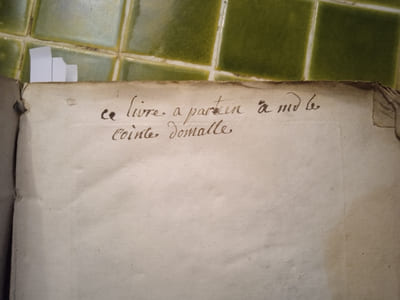 ce livre a partin a md le
cointe domalle